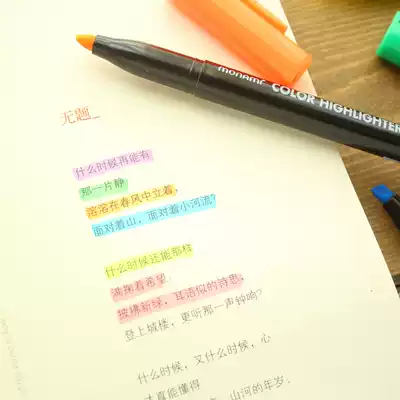 monami COLOR HIGHLIGHTER
无题_
什么时候再能有
那一片静
溶溶在春风中立着,
面对着山,面对着小河流?
什么时候还能那样
满掬着希望
披拂新绿,耳语似的诗思,
登上城楼,更听那一声钟响?
什么时候,又什么时候,心
才真能懂得
山河的年岁;